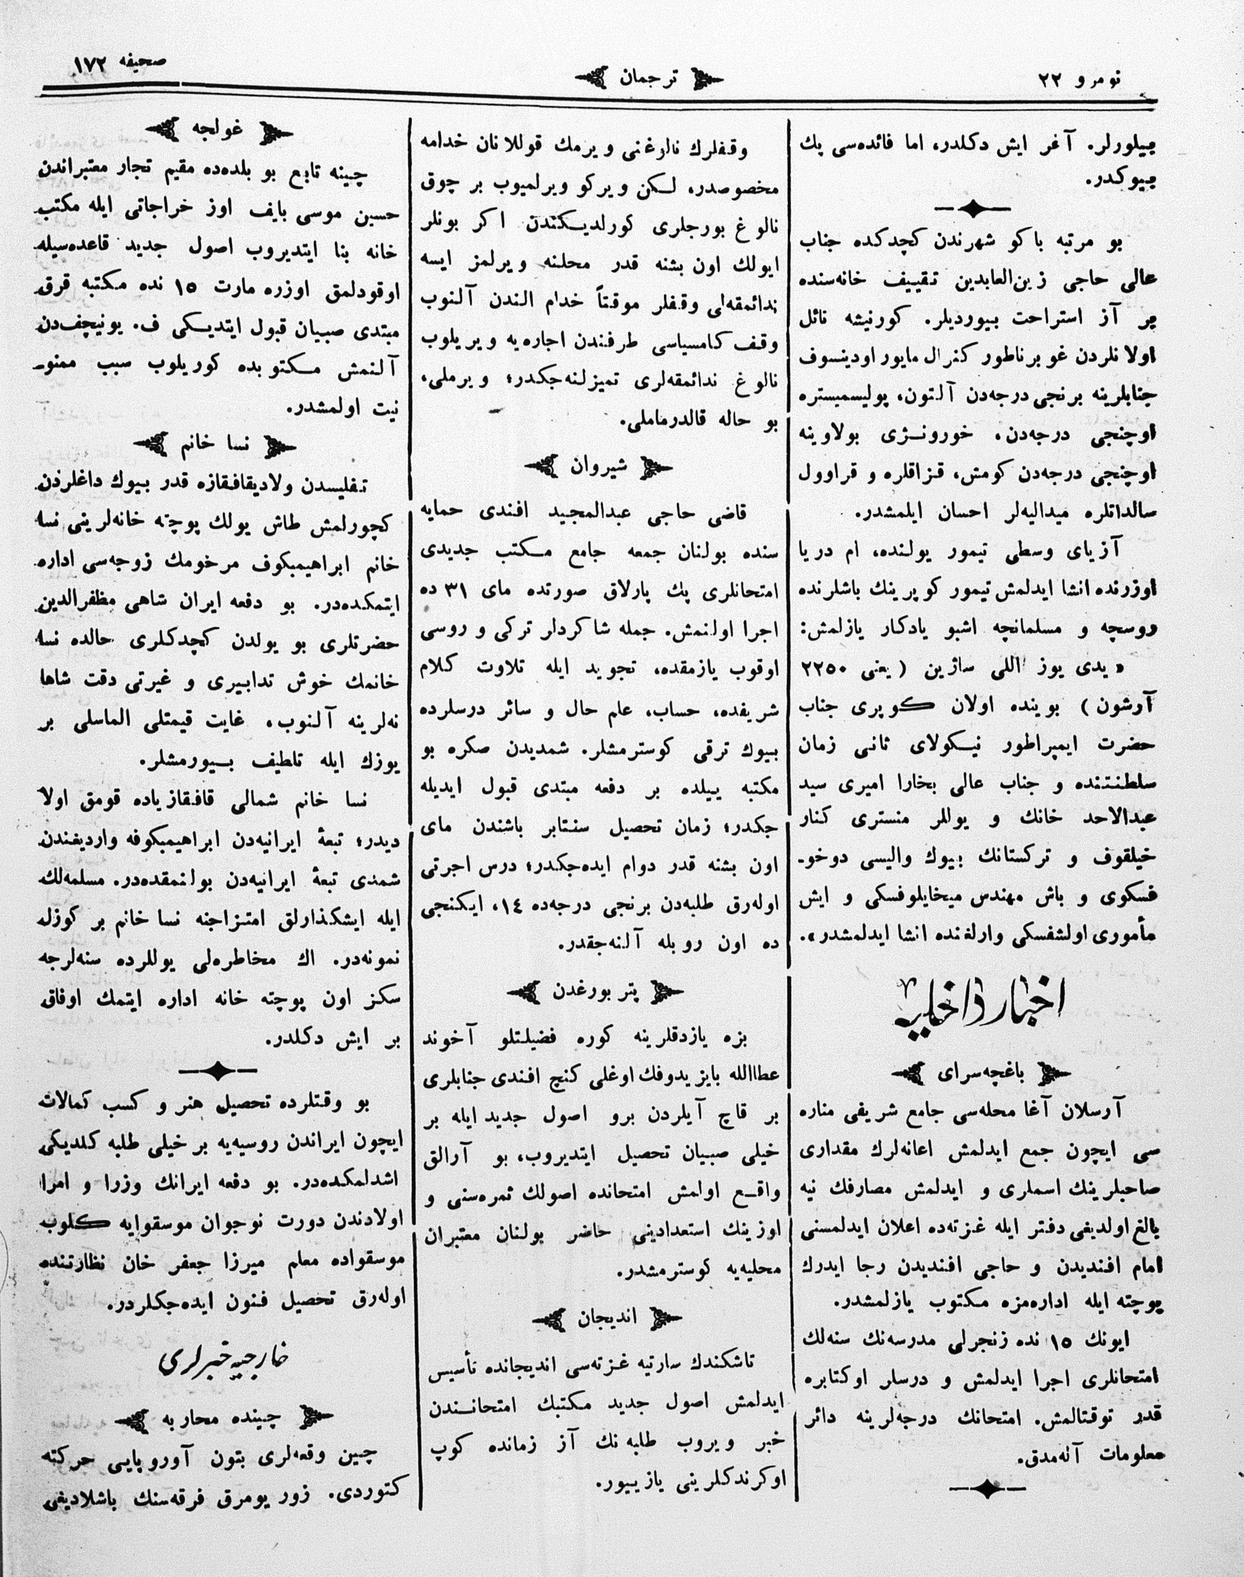 نومرو ٢٢
ترجمان
صحیفه ١٧٢
بیلورلر. آغر ایش دكلدر، اما فائده‌سی پك
بیوكدر.
بو مرتبه باكو شهرندن كچدكده جناب
عالی حاجی زین‌العابدین تقییف خانه‌سنده
بر آز استراحت بیوردیلر. كورنیشه نائل
اولانلردن غوبرناطور كنرال مایور اودینسوف
جنابلرینه برنجی درجه‌دن آلتون، پولیسمیستره
اوچنجی درجه‌دن، خورونژی بولاوینه
اوچنجی درجه‌دن كومش، قزاقلره و قراوول
سالداتلره میدالیه‌لر احسان ایلمشدر.
آزیای وسطی تیمور یولنده، ام دریا
اوزرنده انشا ایدلمش تیمور كوپرینك باشلرنده
روسچه و مسلمانچه اشبو یادكار یازلمش:
« یدی یوز اللی ساژین ( یعنی ٢٢٥٠
آرشون ) بوینده اولان كوپری جناب
حضرت ایمپراطور نیكولای ثانی زمان
سلطنتنده و جناب عالی بخارا امیری سید
عبدالاحد خانك و یوللر منستری كناز
خیلقوف و تركستانك بیوك والیسی دوخو-
فسكوی و باش مهندس میخایلوفسكی و ایش
مأموری اولشفسكی وارلغنده انشا ایدلمشدر».
اخبار داخلیه
باغچه‌سرای
آرسلان آغا محله‌سی جامع شریفی مناره
سی ایچون جمع ایدلمش اعانه‌لرك مقداری
صاحبلرینك اسملری و ایدلمش مصارفك نیه
بالغ اولدیغی دفتر ایله غزته‌ده اعلان ایدلمسنی
امام افندیدن و حاجی افندیدن رجا ایدرك
پوچته ایله اداره‌مزه مكتوب یازلمشدر.
ایونك ١٥ نده زنجرلی مدرسه‌نك سنه‌لك
امتحانلری اجرا ایدلمش و درسلر اوكتابره
قدر توقتالمش. امتحانك درجه‌لرینه دائر
معلومات آله‌مدق.
وقفلرك نالوغنی ویرمك قوللانان خدامه
مخصوصدر، لكن ویركو ویرلمیوب بر چوق
نالوغ بورجلری كورلدیكندن اكر بونلر
ایولك اون بشنه قدر محلنه ویرلمز ایسه
ندائمقه‌لی وقفلر موقتاً خدام الندن آلنوب
وقف كامسیاسی طرفندن اجاره‌یه ویریلوب
نالوغ ندائمقه‌لری تمیزلنه‌جكدر؛ ویرملی،
بو حاله قالدرماملی.
شیروان
قاضی حاجی عبدالمجید افندی حمایه
سنده بولنان جمعه جامع مكتب جدیدی
امتحانلری پك پارلاق صورتده مای ٣١ ده
اجرا اولنمش. جمله شاكردلر تركی و روسی
اوقوب یازمقده، تجوید ایله تلاوت كلام
شریفده، حساب، علم حال و سائر درسلرده
بیوك ترقی كوسترمشلر. شمدیدن صكره بو
مكتبه ییلده بر دفعه مبتدی قبول ایدیله
جكدر؛ زمان تحصیل سنتابر باشندن مای
اون بشنه قدر دوام ایده‌جكدر؛ درس اجرتی
اوله‌رق طلبه‌دن برنجی درجه‌ده ١٤، ایكنجی
ده اون روبله آلنه‌جقدر.
پتربورغدن
بزه یازدقلرینه كوره فضیلتلو آخوند
عطاالله بایزیدوفك اوغلی كنچ افندی جنابلری
بر قاچ آیلردن برو اصول جدید ایله بر
خیلی صبیان تحصیل ایتدیروب، بو آرالق
واقع اولمش امتحانده اصولك ثمره‌سنی و
اوزینك استعدادینی حاضر بولنان معتبران
محلیه‌یه كوسترمشدر.
اندیجان
تاشكندك سارتیه غزته‌سی اندیجانده تأسیس
ایدلمش اصول جدید مكتبك امتحانندن
خبر ویروب طلبه‌نك آز زمانده كوپ
اوكرندكلرینی یازییور.
غولجه
چینه تابع بو بلده‌ده مقیم تجار معتبراندن
حسین موسی بایف اوز خراجاتی ایله مكتب
خانه بنا ایتدیروب اصول جدید قاعده‌سیله
اوقودلمق اوزره مارت ١٥ نده مكتبه قرق
مبتدی صبیان قبول ایتدیكی ف. یونیچف‌دن
آلنمش مكتوبده كوریلوب سبب ممنو-
نیت اولمشدر.
نسا خانم
تفلیسدن ولادیقافقازه قدر بیوك داغلردن
كچورلمش طاش یولك پوچته خانه‌لرینی نسا
خانم ابراهیمبكوف مرحومك زوجه‌سی اداره
ایتمكده‌در. بو دفعه ایران شاهی مظفرالدین
حضرتلری بو یولدن كچدكلری حالده نسا
خانمك خوش تدابیری و غیرتی دقت شاها
نه‌لرینه آلنوب، غایت قیمتلی الماسلی بر
یوزك ایله تلطیف بیورمشلر.
نسا خانم شمالی قافقازیاده قومق اولا
دیدر؛ تبعهٔ ایرانیه‌دن ابراهیمبكوفه واردیغندن
شمدی تبعهٔ ایرانیه‌دن بولنمقده‌در. مسلمه‌لك
ایله ایشكذارلق امتزاجنه نسا خانم بر كوزل
نمونه‌در. اك مخاطره‌لی یوللرده سنه‌لرجه
سكز اون پوچته خانه اداره ایتمك اوفاق
بر ایش دكلدر.
بو وقتلرده تحصیل هنر و كسب كمالات
ایچون ایراندن روسیه‌یه بر خیلی طلبه كلدیكی
اشدلمكده‌در. بو دفعه ایرانك وزرا و امرا
اولادندن دورت نوجوان موسقوایه كلوب
موسقواده معلم میرزا جعفر خان نظارتنده
اوله‌رق تحصیل فنون ایده‌جكلردر.
خارجیه خبرلری
چینده محاربه
چین وقعه‌لری بتون آوروپایی حركته
كتوردی. زور یومرق فرقه‌سنك باشلادیغی